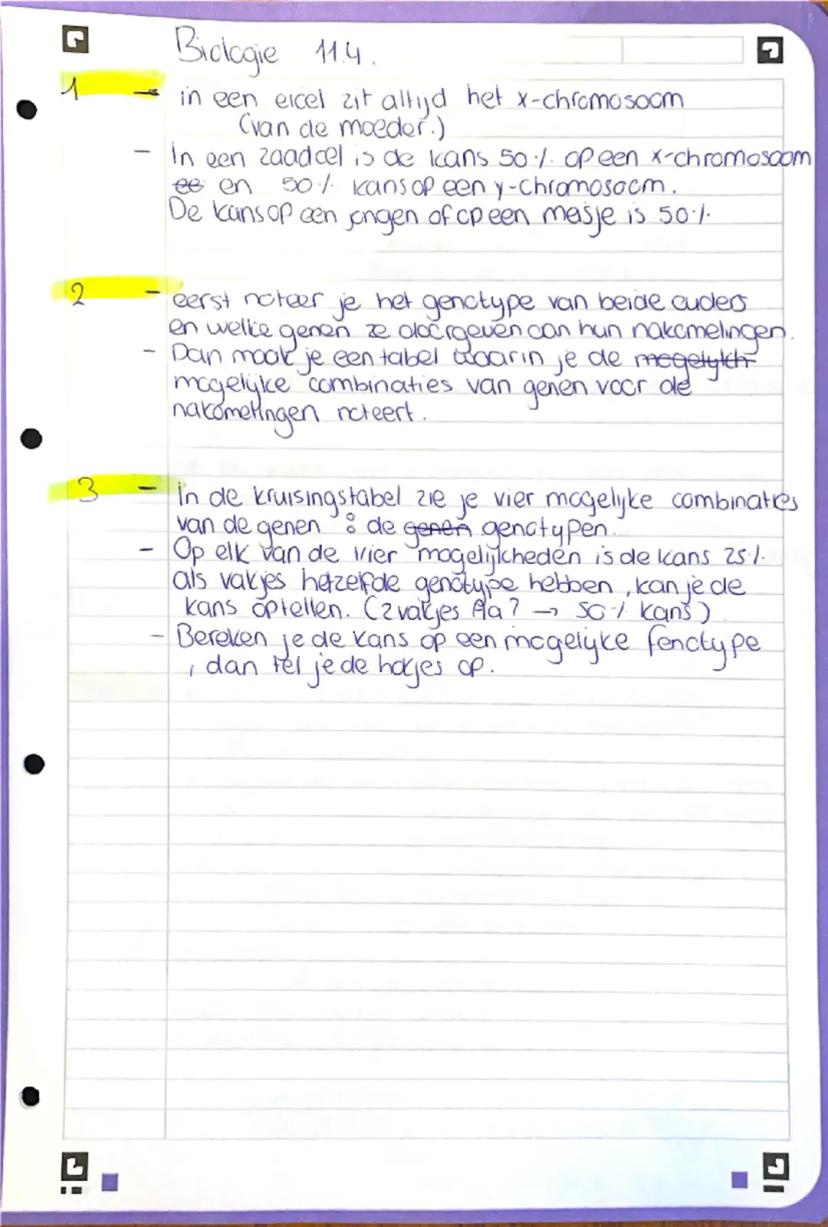 Biologie 11.4.
1 - in een eicel zit altijd het x-chromosoom
(van de moeder.)
- In een zaadcel is de kans 50% op een x-chromosoom
ee en 50% kans op een y-chromosoom.
De kans op een jongen of op een meisje is 50%.
2 - eerst noteer je het genotype van beide ouders
en welke genen ze doorgeven aan hun nakomelingen.
- Dan maak je een tabel waarin je de mogelykh
mogelijke combinaties van genen voor de
nakomelingen noteert.
3 - in de kruisingstabel zie je vier mogelijke combinaties
van de genen : de genen genotypen.
- Op elk van de vier mogelijkheden is de kans 25%.
als vakjes hetzelfde genotype hebben, kan je de
kans optellen. (2 vakjes Aa? → 50% kans)
- Bereken je de kans op een mogelijke fenotype
, dan tel je de hokjes op.